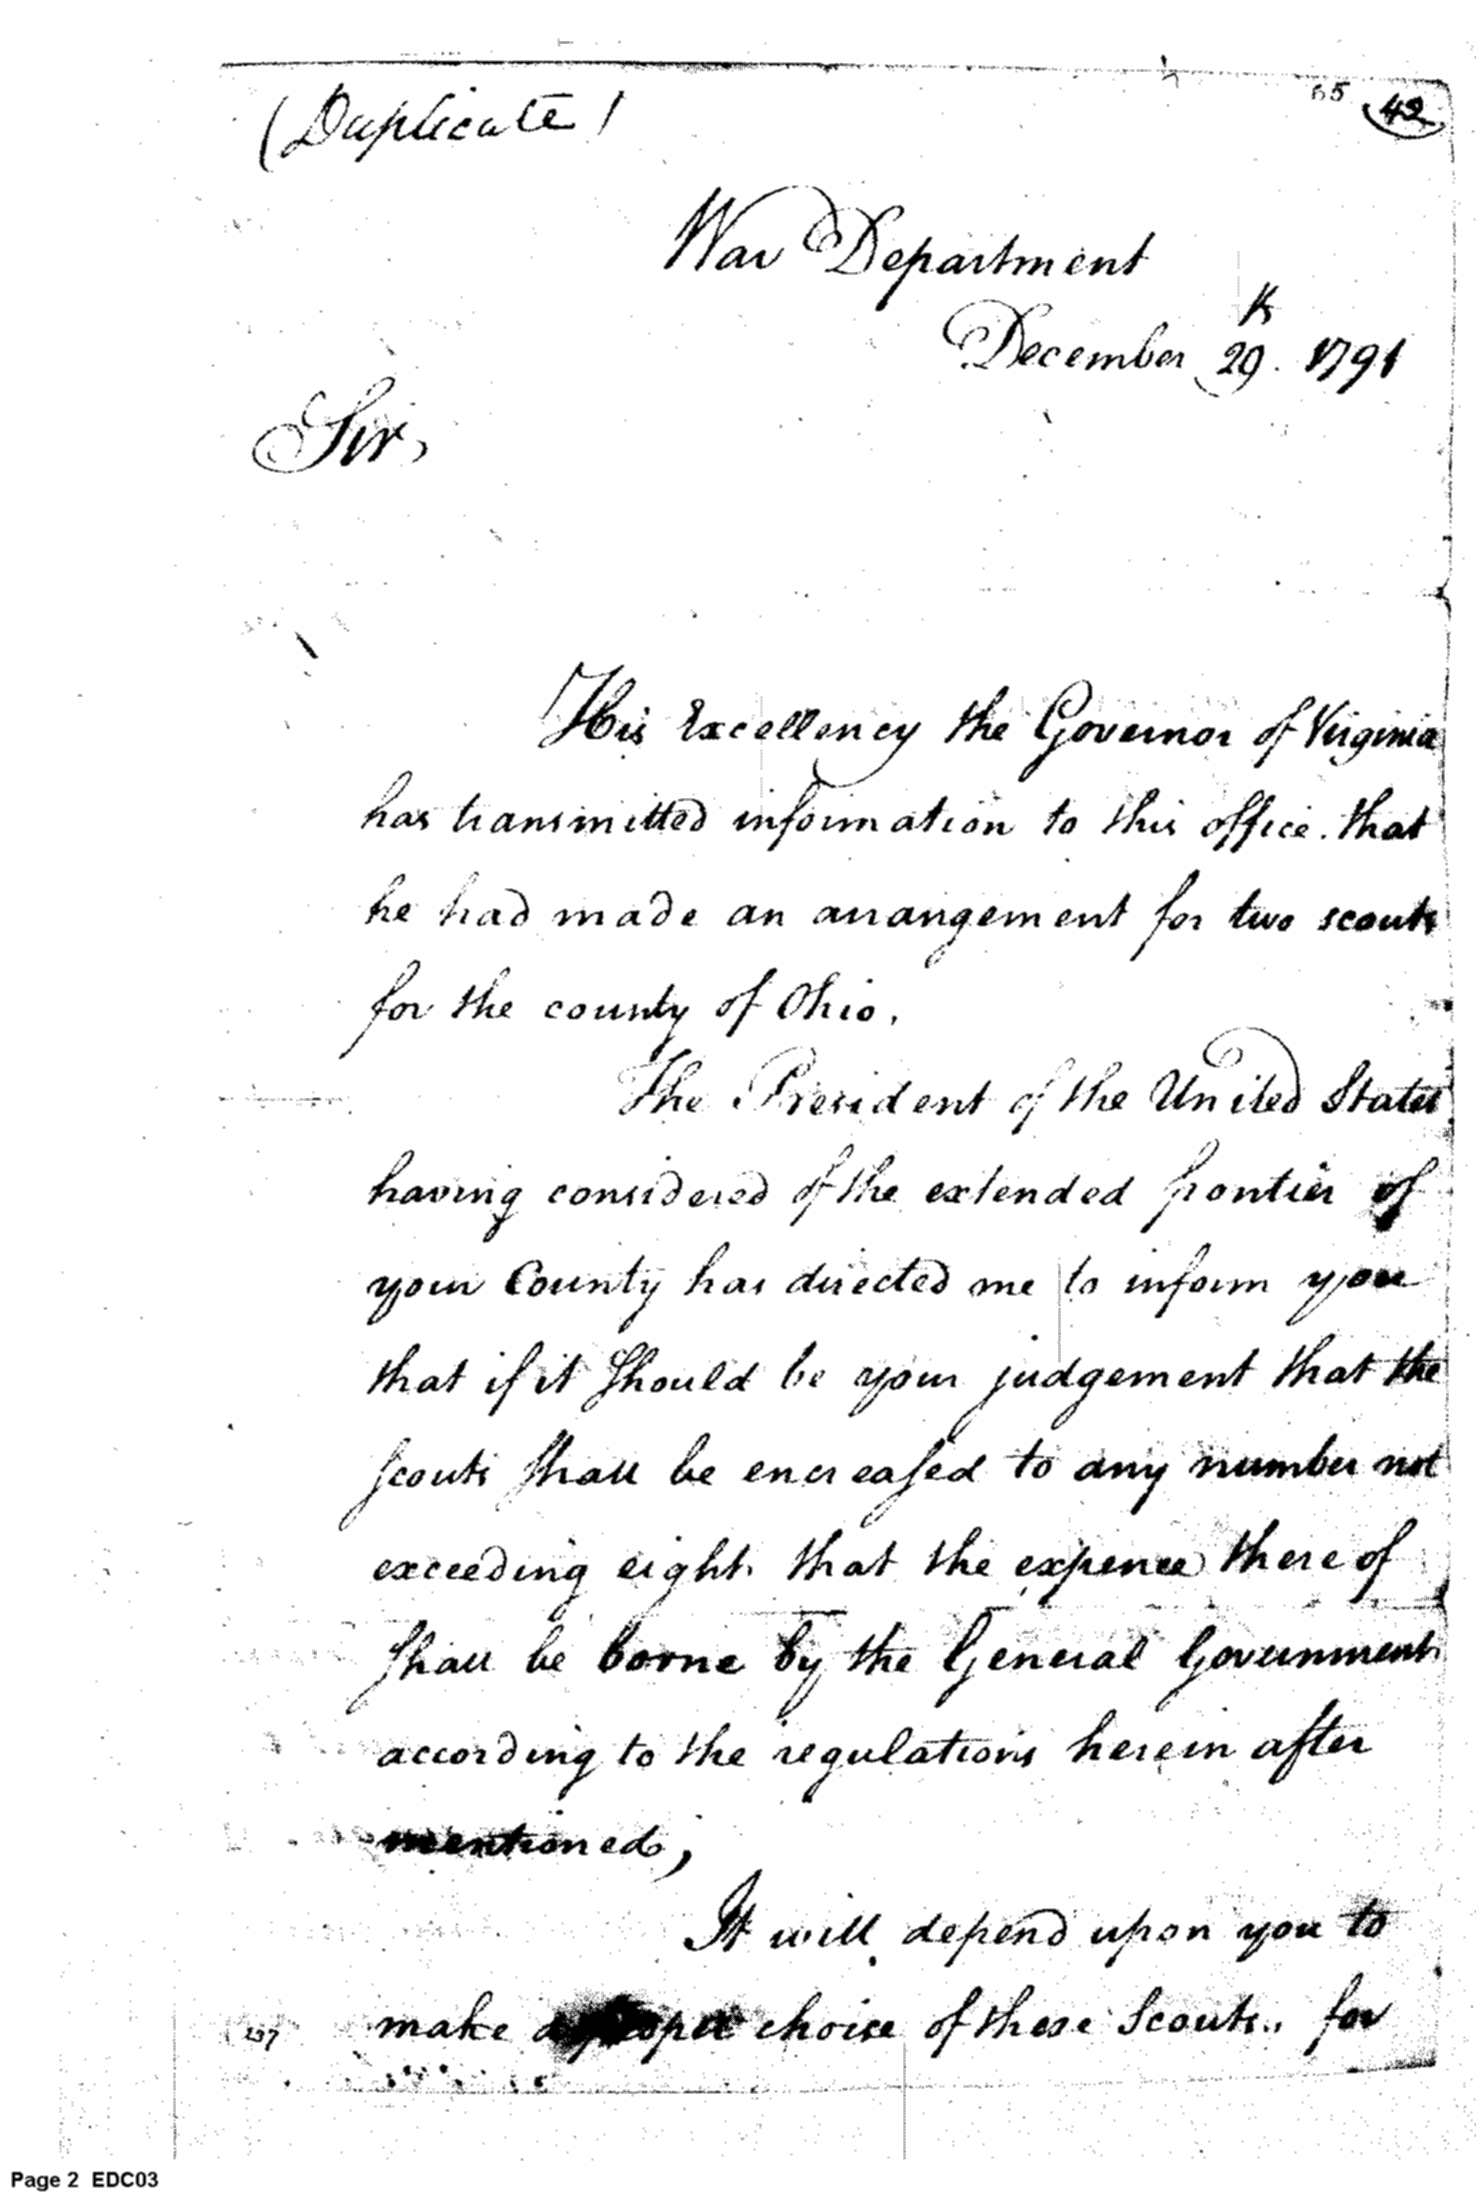 65 42
(Duplicate)
War Department
December 29th. 1791
Sir,
His Excellency the Governor of Virginia
has transmitted information to this office. that
he had made an arrangement for two scouts
for the county of Ohio.
The President of the United States
having considered of the extended frontier of
your County has directed me to inform you
that if it should be your judgement that the
scouts shall be encreased to any number not
exceeding eight. that the expence there of
shall be borne by the General Government
according to the regulations herein after
mentioned,
It will depend upon you to
make a proper choice of these Scouts., for
137
Page 2 EDC03